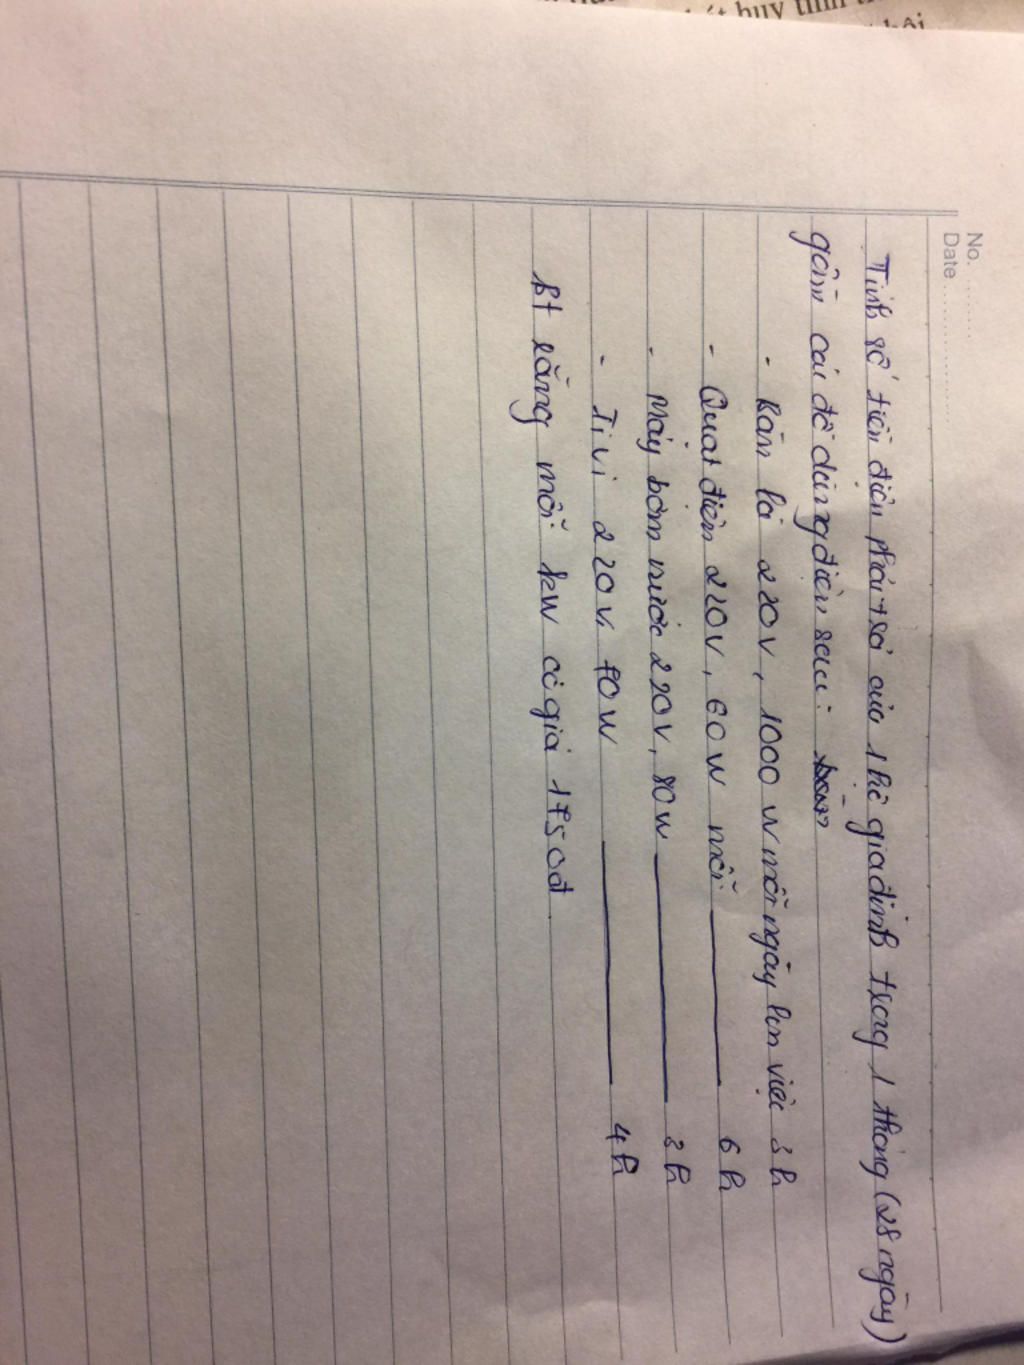 No.
Date
Tính số tiền điện phải trả của 1 hộ gia đình trong 1 tháng (28 ngày)
gồm các đồ dùng điện sau:
- Bàn là 220V, 1000 W mỗi ngày làm việc 3h
- Quạt điện 220V, 60 W mỗi 6h
- Máy bơm nước 220V, 80W 3h
- Ti vi 220V, 70W 4h
bt rằng mỗi kW có giá 1750đ